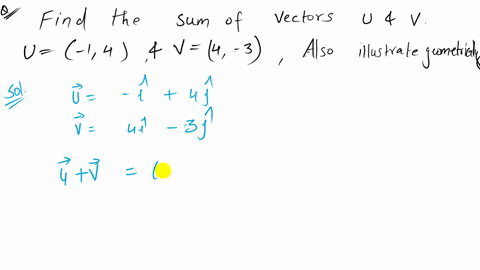 Q Find the sum of vectors U & V.
U = (-1, 4), & V = (4, -3), Also illustrate geometrically
Sol. u⃗ = -î + 4ĵ
v⃗ = 4î - 3ĵ
u⃗ + v⃗ = (